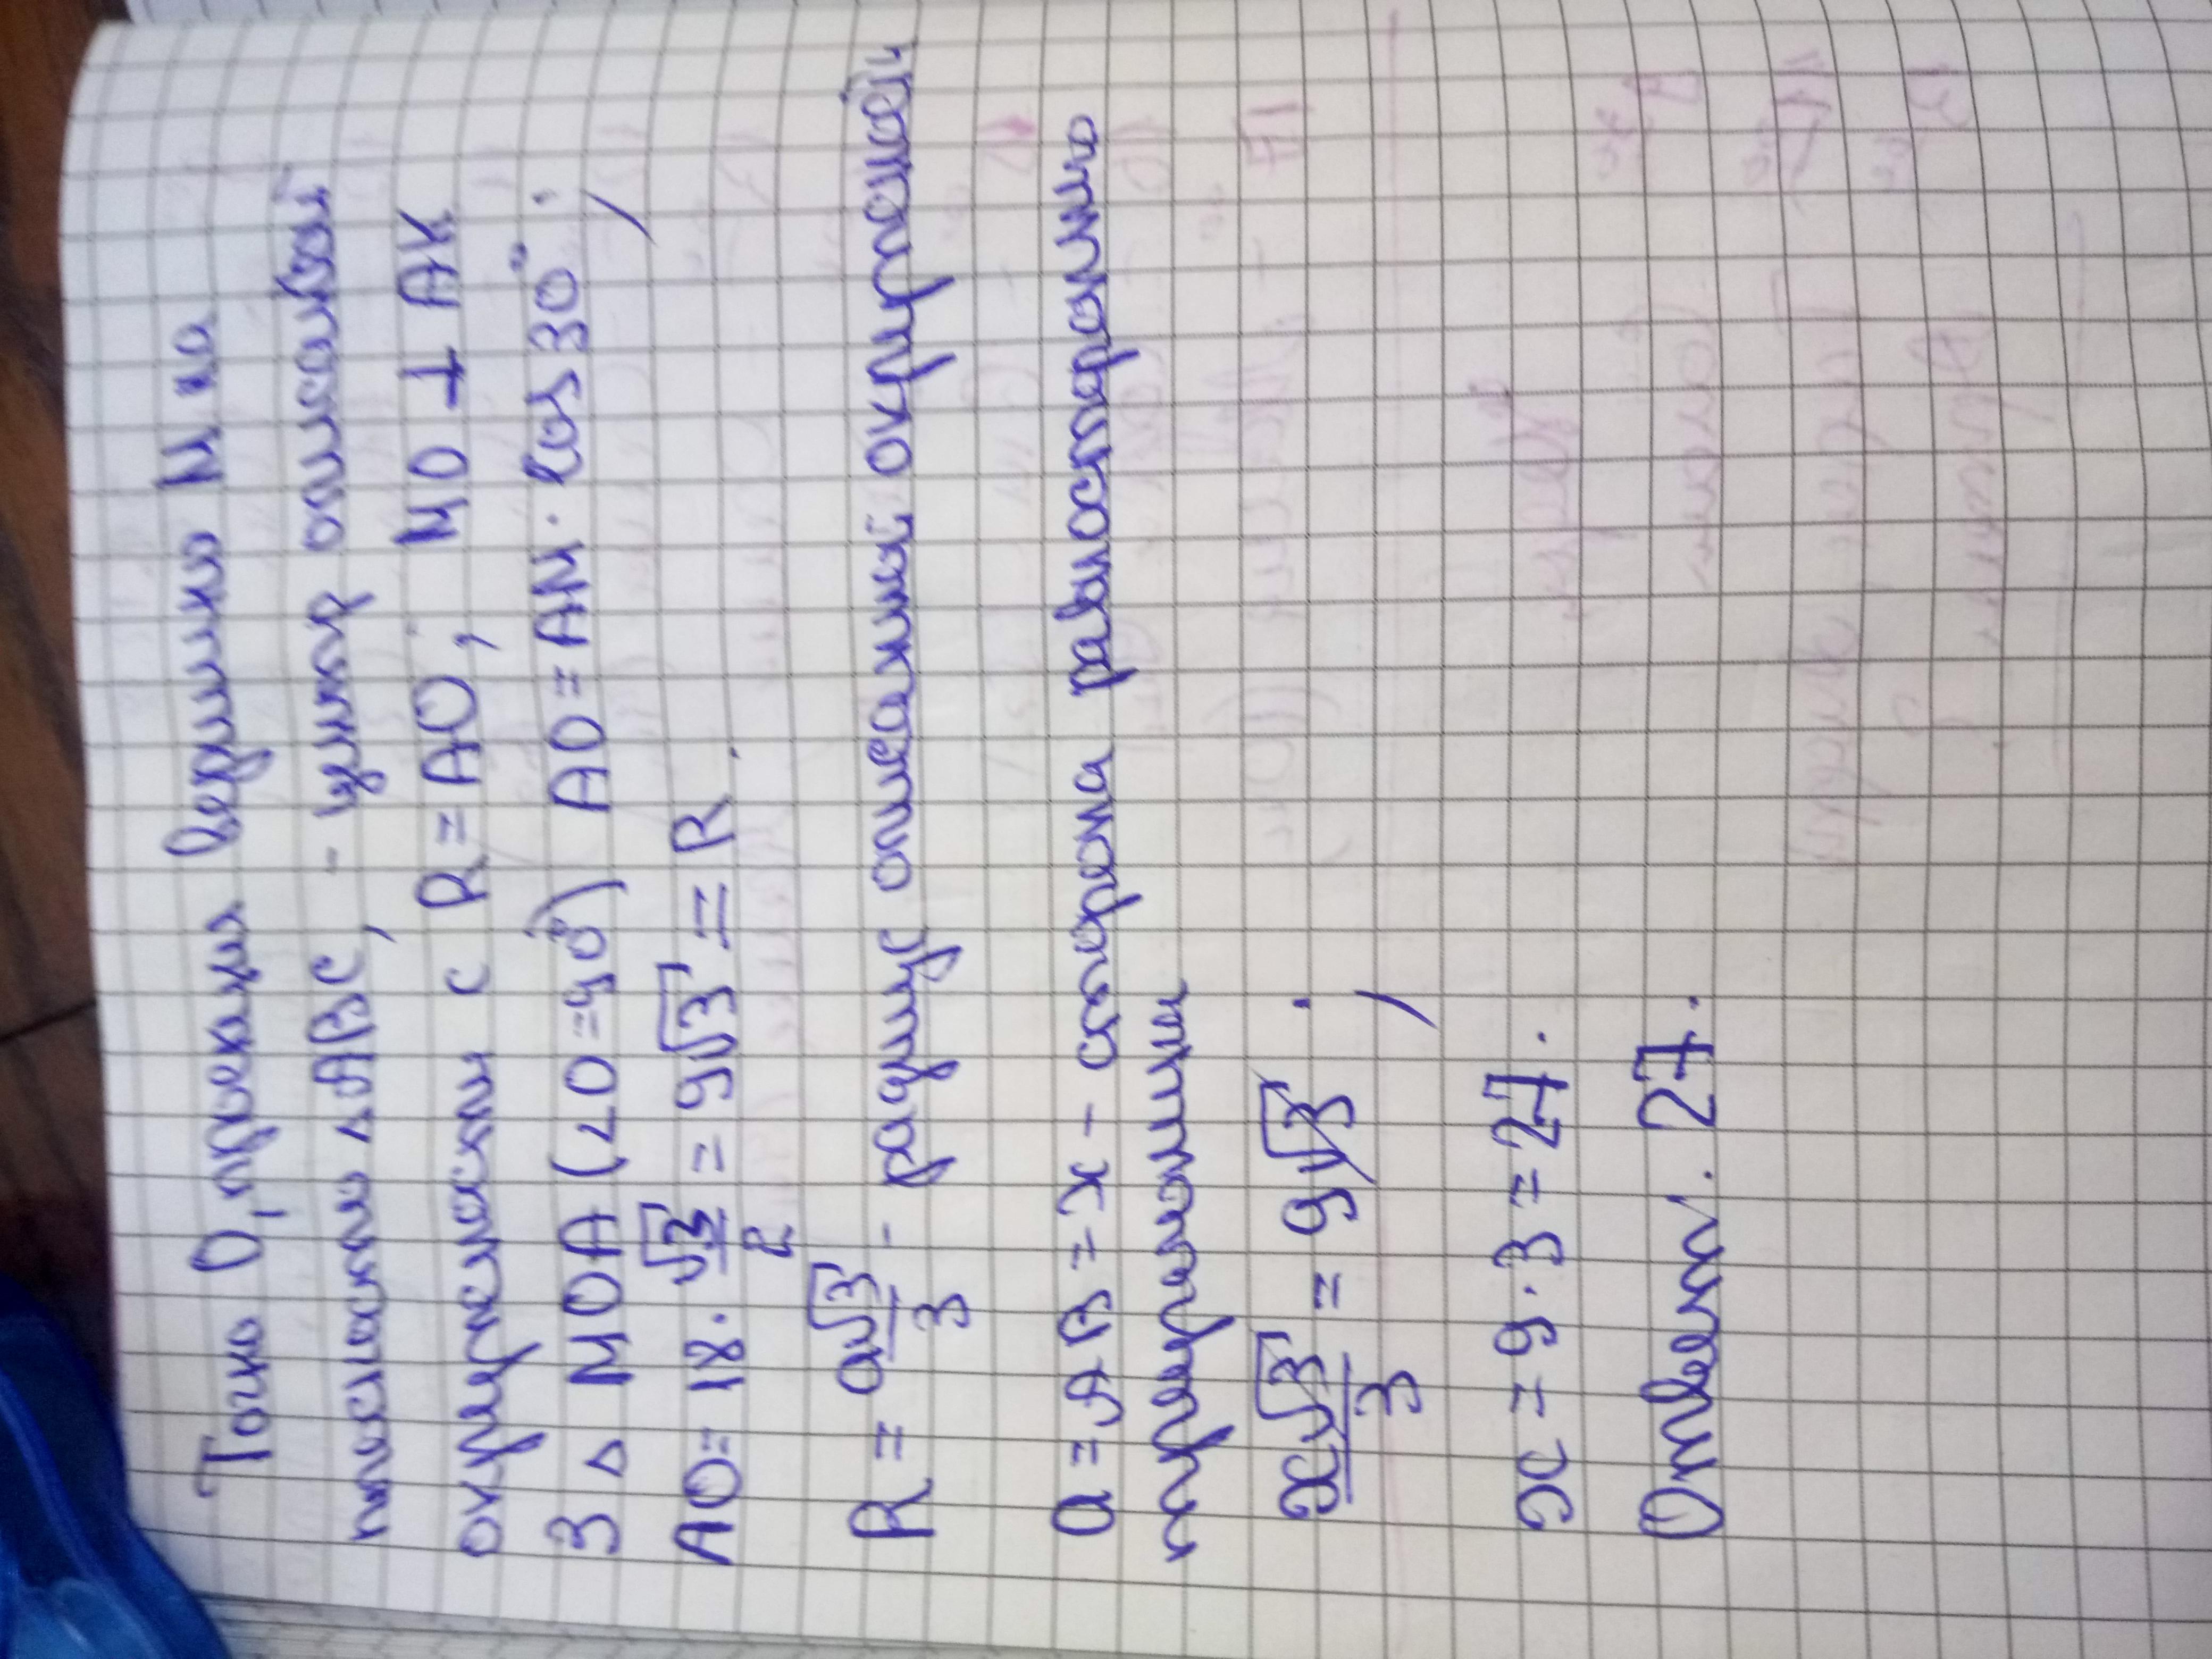 Точка О, проекция вершины М на
плоскость ΔABC, - центр описанной
окружности с R = AO; MO ⊥ AK
З Δ MOA (∠O=90°) AO = AM · cos 30°;
AO = 18 · √3/2 = 9√3 = R.
R = a√3/3 - радиус описанной окружности
a = AB = x - сторона равностороннего
треугольника
x√3/3 = 9√3;
x = 9 · 3 = 27.
Ответ. 27.